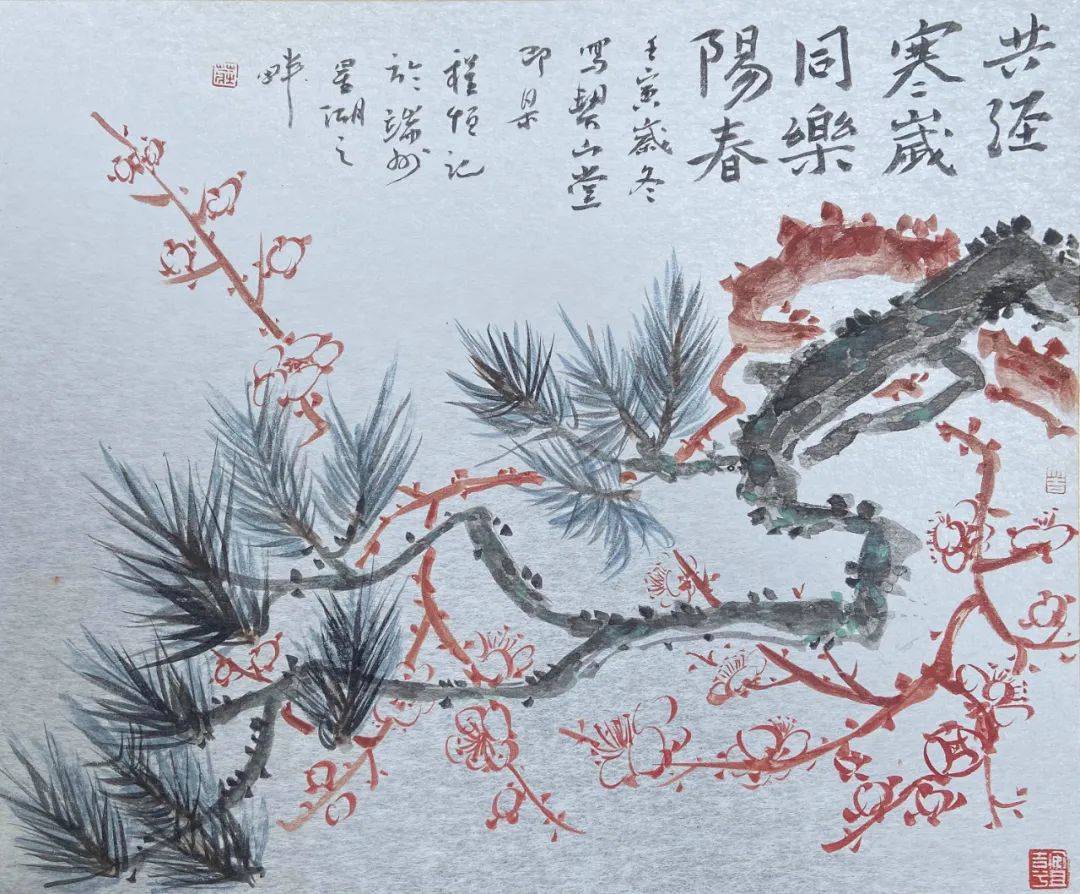 共經
寒歲
同樂
陽春
壬寅歲冬
寫契山堂
即景
程恒記
於端州
星湖之
畔